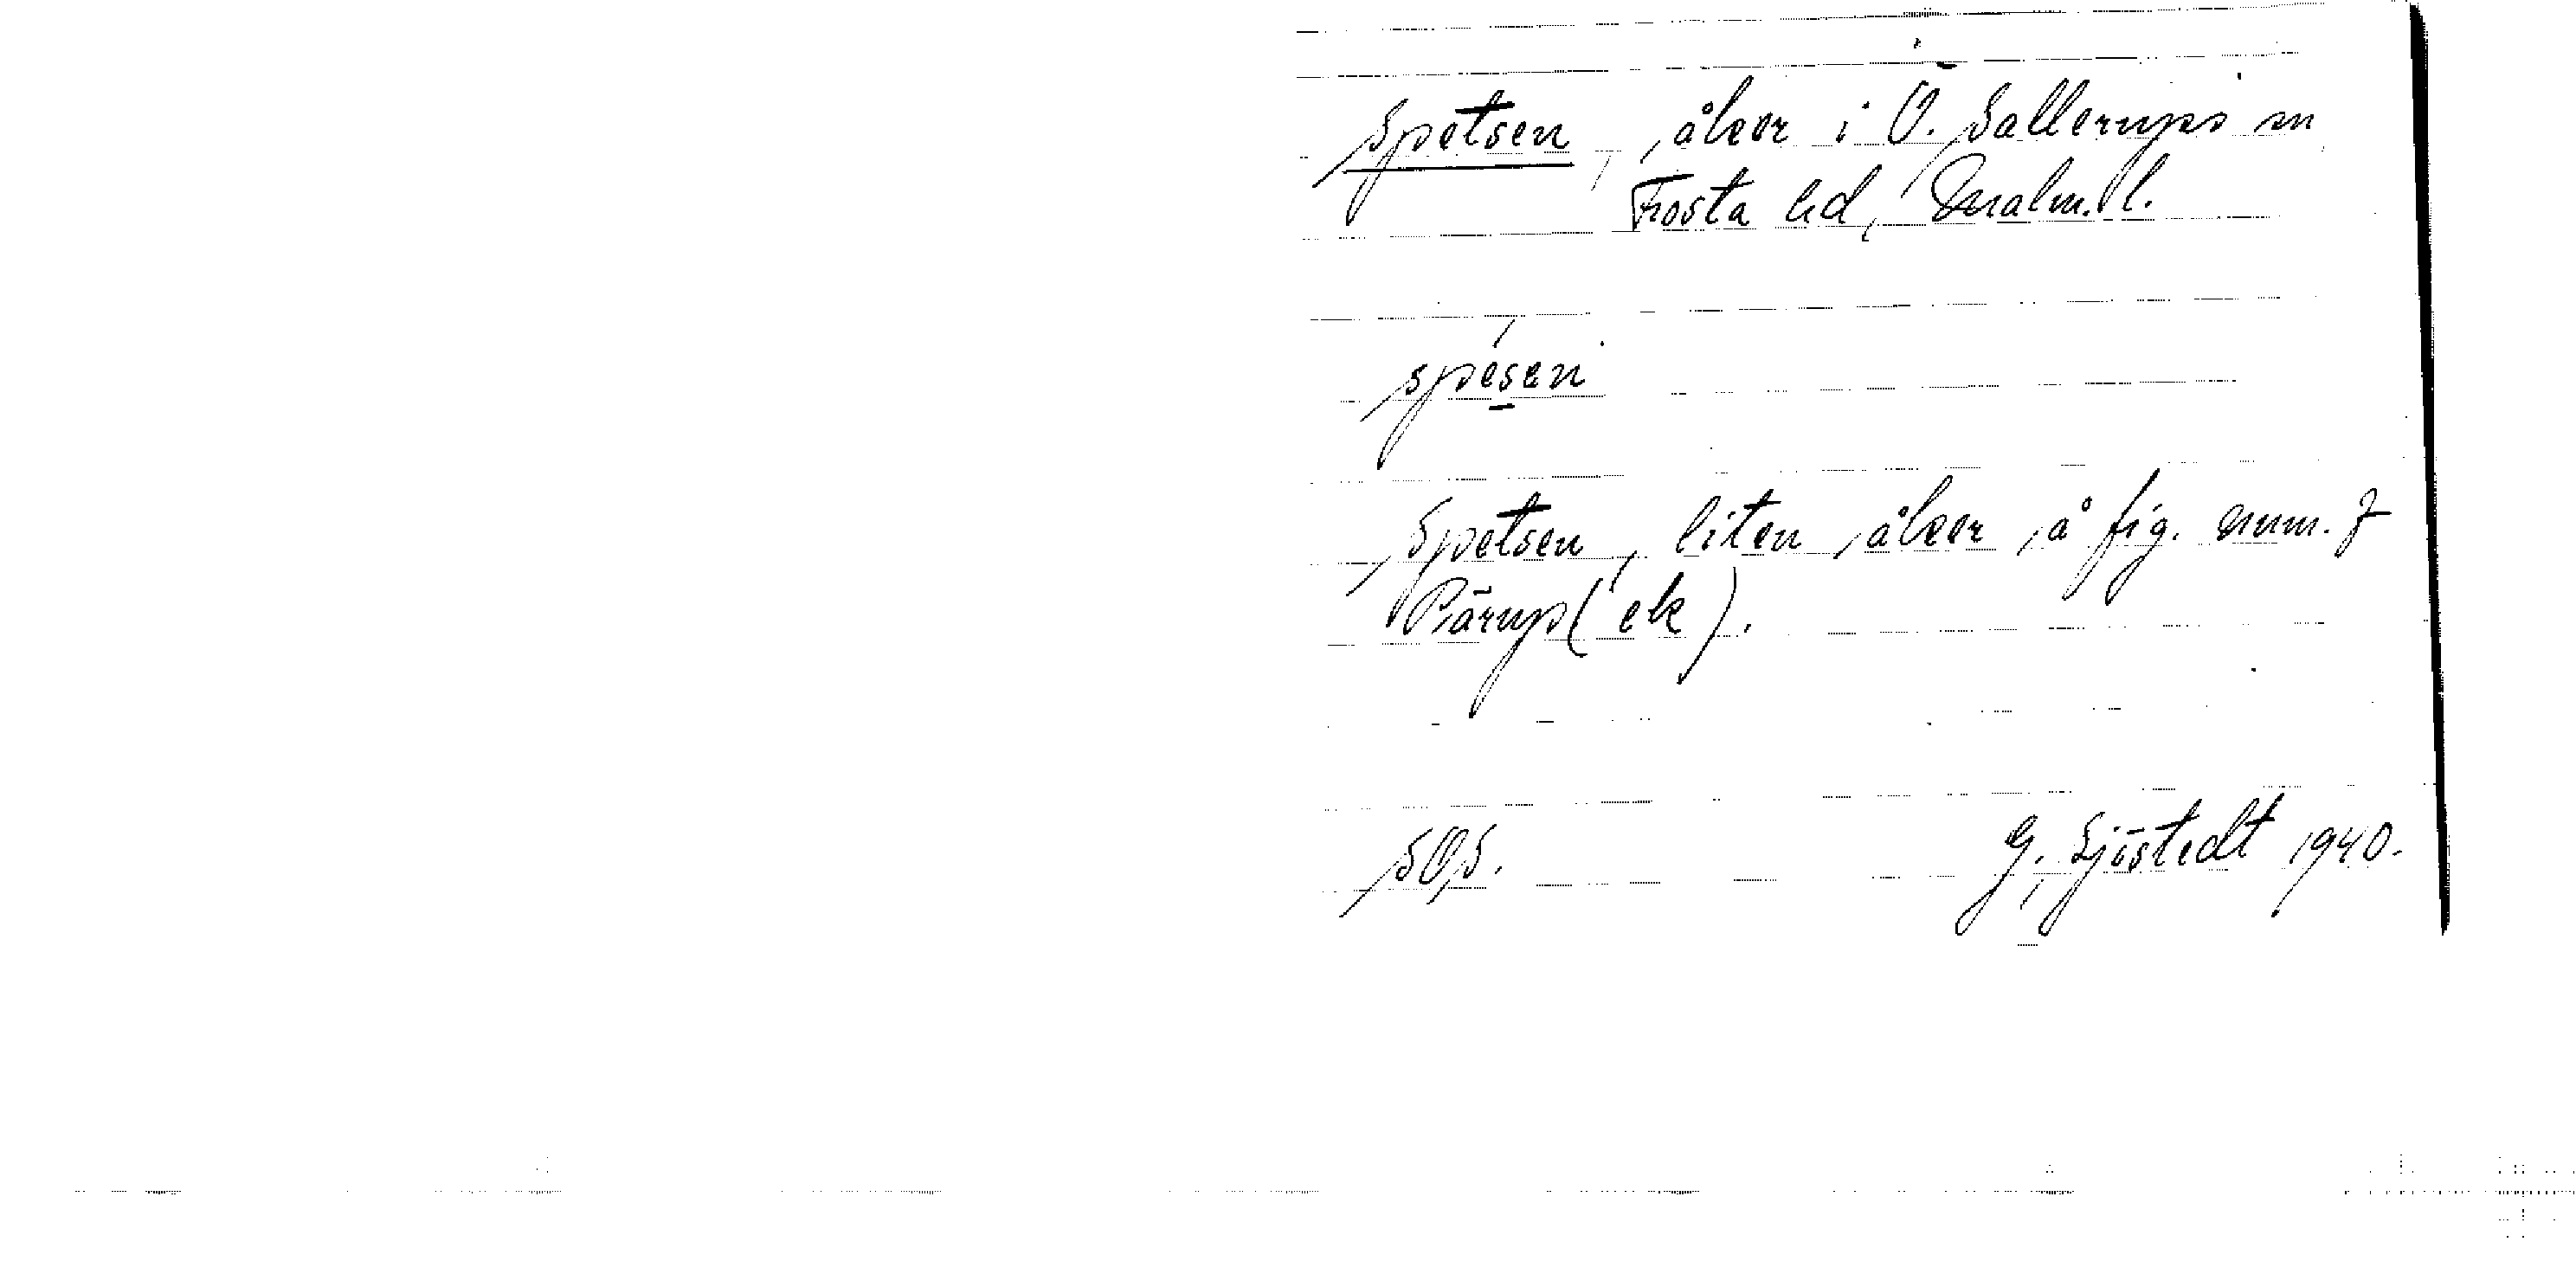 Spetsen, åker i Ö. Sallerups sn
Frosta hd, Malm. l.
spésen
Spetsen, liten åker å fig. num. 7
Pärup (ek).
SOS.
G. Sjöstedt 1940.